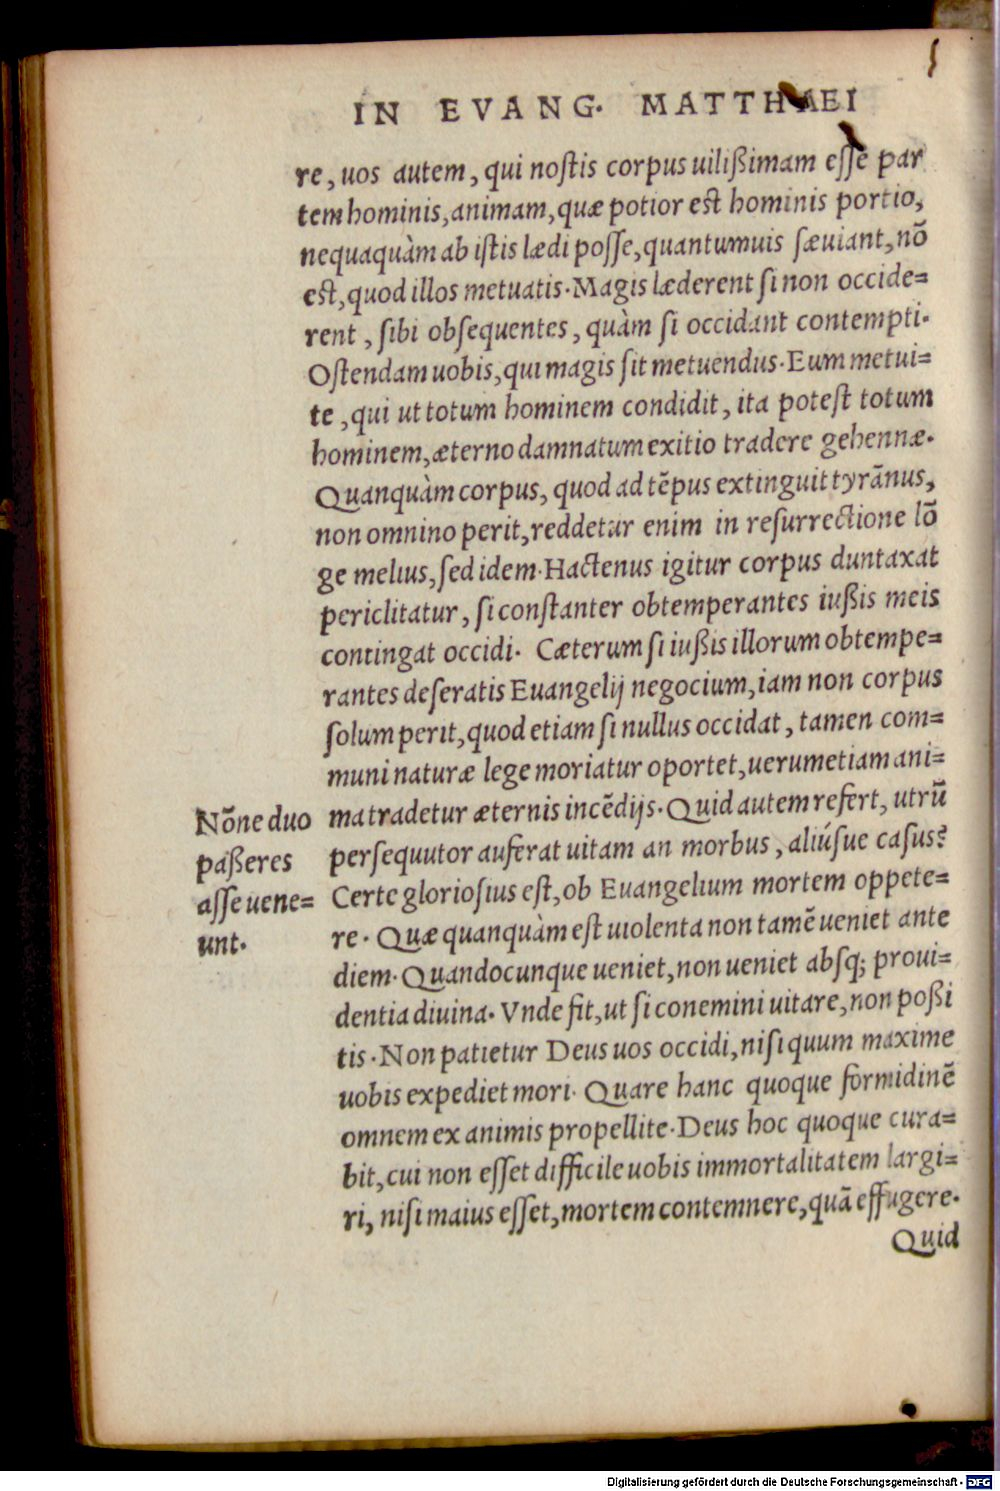 IN EVANG. MATTHAEI
re, uos autem, qui nostis corpus uilißimam esse par
tem hominis, animam, quæ potior est hominis portio,
nequaquàm ab istis lædi posse, quantumuis sæuiant, nõ
est, quod illos metuatis. Magis læderent si non occide=
rent, sibi obsequentes, quàm si occidant contempti.
Ostendam uobis, qui magis sit metuendus. Eum metui=
te, qui ut totum hominem condidit, ita potest totum
hominem, æterno damnatum exitio tradere gehennæ.
Quanquàm corpus, quod ad tẽpus extinguit tyrãnus,
non omnino perit, reddetur enim in resurrectione lõ
ge melius, sed idem. Hactenus igitur corpus duntaxat
periclitatur, si constanter obtemperantes iußis meis
contingat occidi. Cæterum si iußis illorum obtempe=
rantes deseratis Euangelij negocium, iam non corpus
solum perit, quod etiam si nullus occidat, tamen com=
muni naturæ lege moriatur oportet, uerumetiam ani=
ma tradetur æternis incẽdijs. Quid autem refert, utrũ
persequutor auferat uitam an morbus, aliúsue casus?
Certe gloriosius est, ob Euangelium mortem oppete=
re. Quæ quanquàm est uiolenta non tamẽ ueniet ante
diem. Quandocunque ueniet, non ueniet absq; proui=
dentia diuina. Vnde fit, ut si conemini uitare, non poßi
tis. Non patietur Deus uos occidi, nisi quum maxime
uobis expediet mori. Quare hanc quoque formidinẽ
omnem ex animis propellite. Deus hoc quoque cura=
bit, cui non esset difficile uobis immortalitatem largi=
ri, nisi maius esset, mortem contemnere, quã effugere.
Quid
Nõne duo
paßeres
asse uene=
unt.
Digitalisierung gefördert durch die Deutsche Forschungsgemeinschaft - DFG